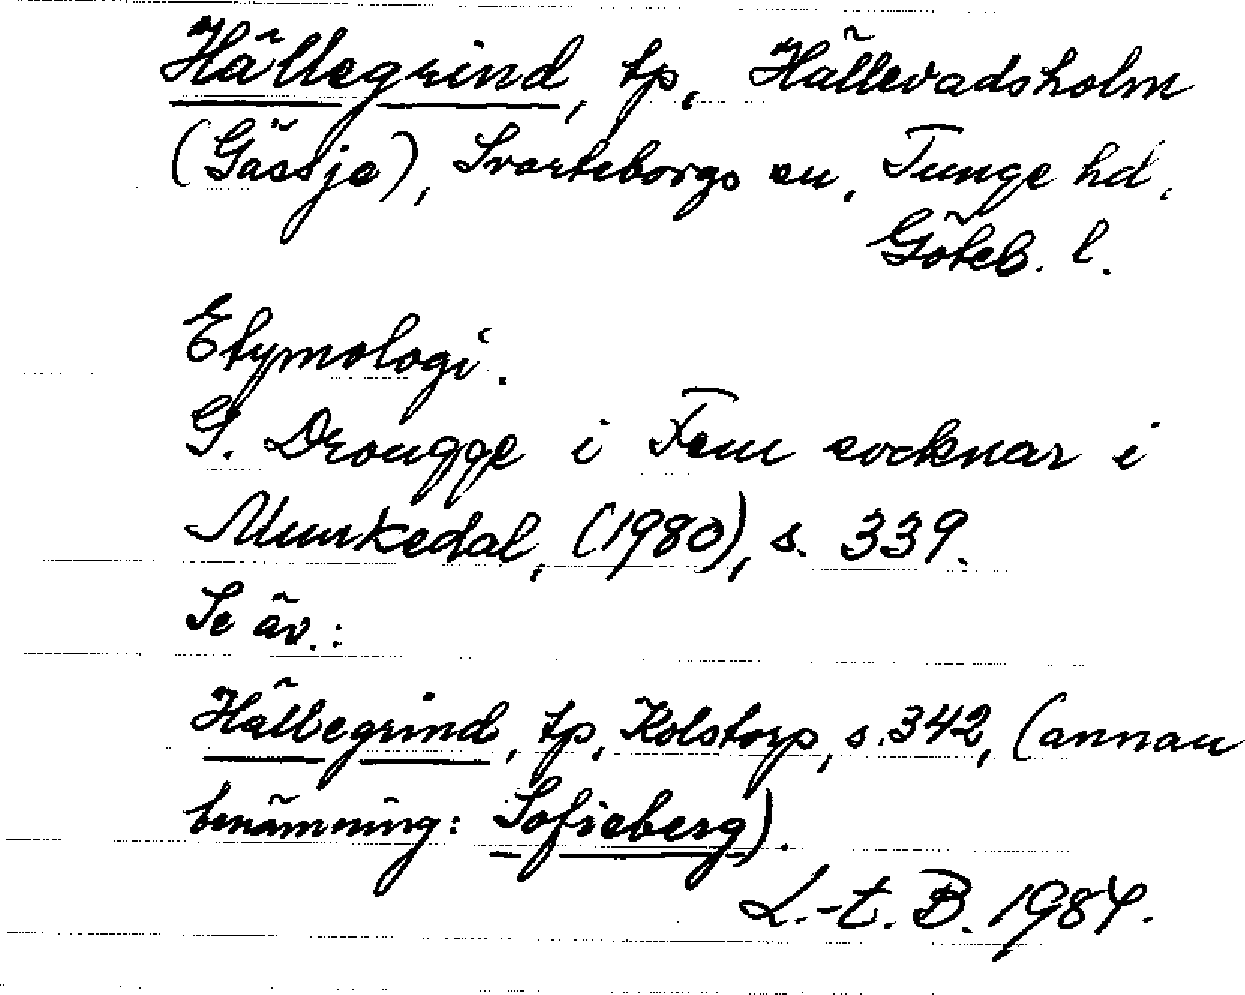 Hällegrind, tp, Hällevadsholm
(Gässje), Svarteborgs sn, Tunge hd.
Göteb. l.
Etymologi.
G. Drougge i Fem socknar i
Munkedal, (1980), s. 339.
Se äv.:
Hällegrind, tp, Kolstorp, s. 342, (annan
benämning: Sofieberg).
L.-t. B. 1984.